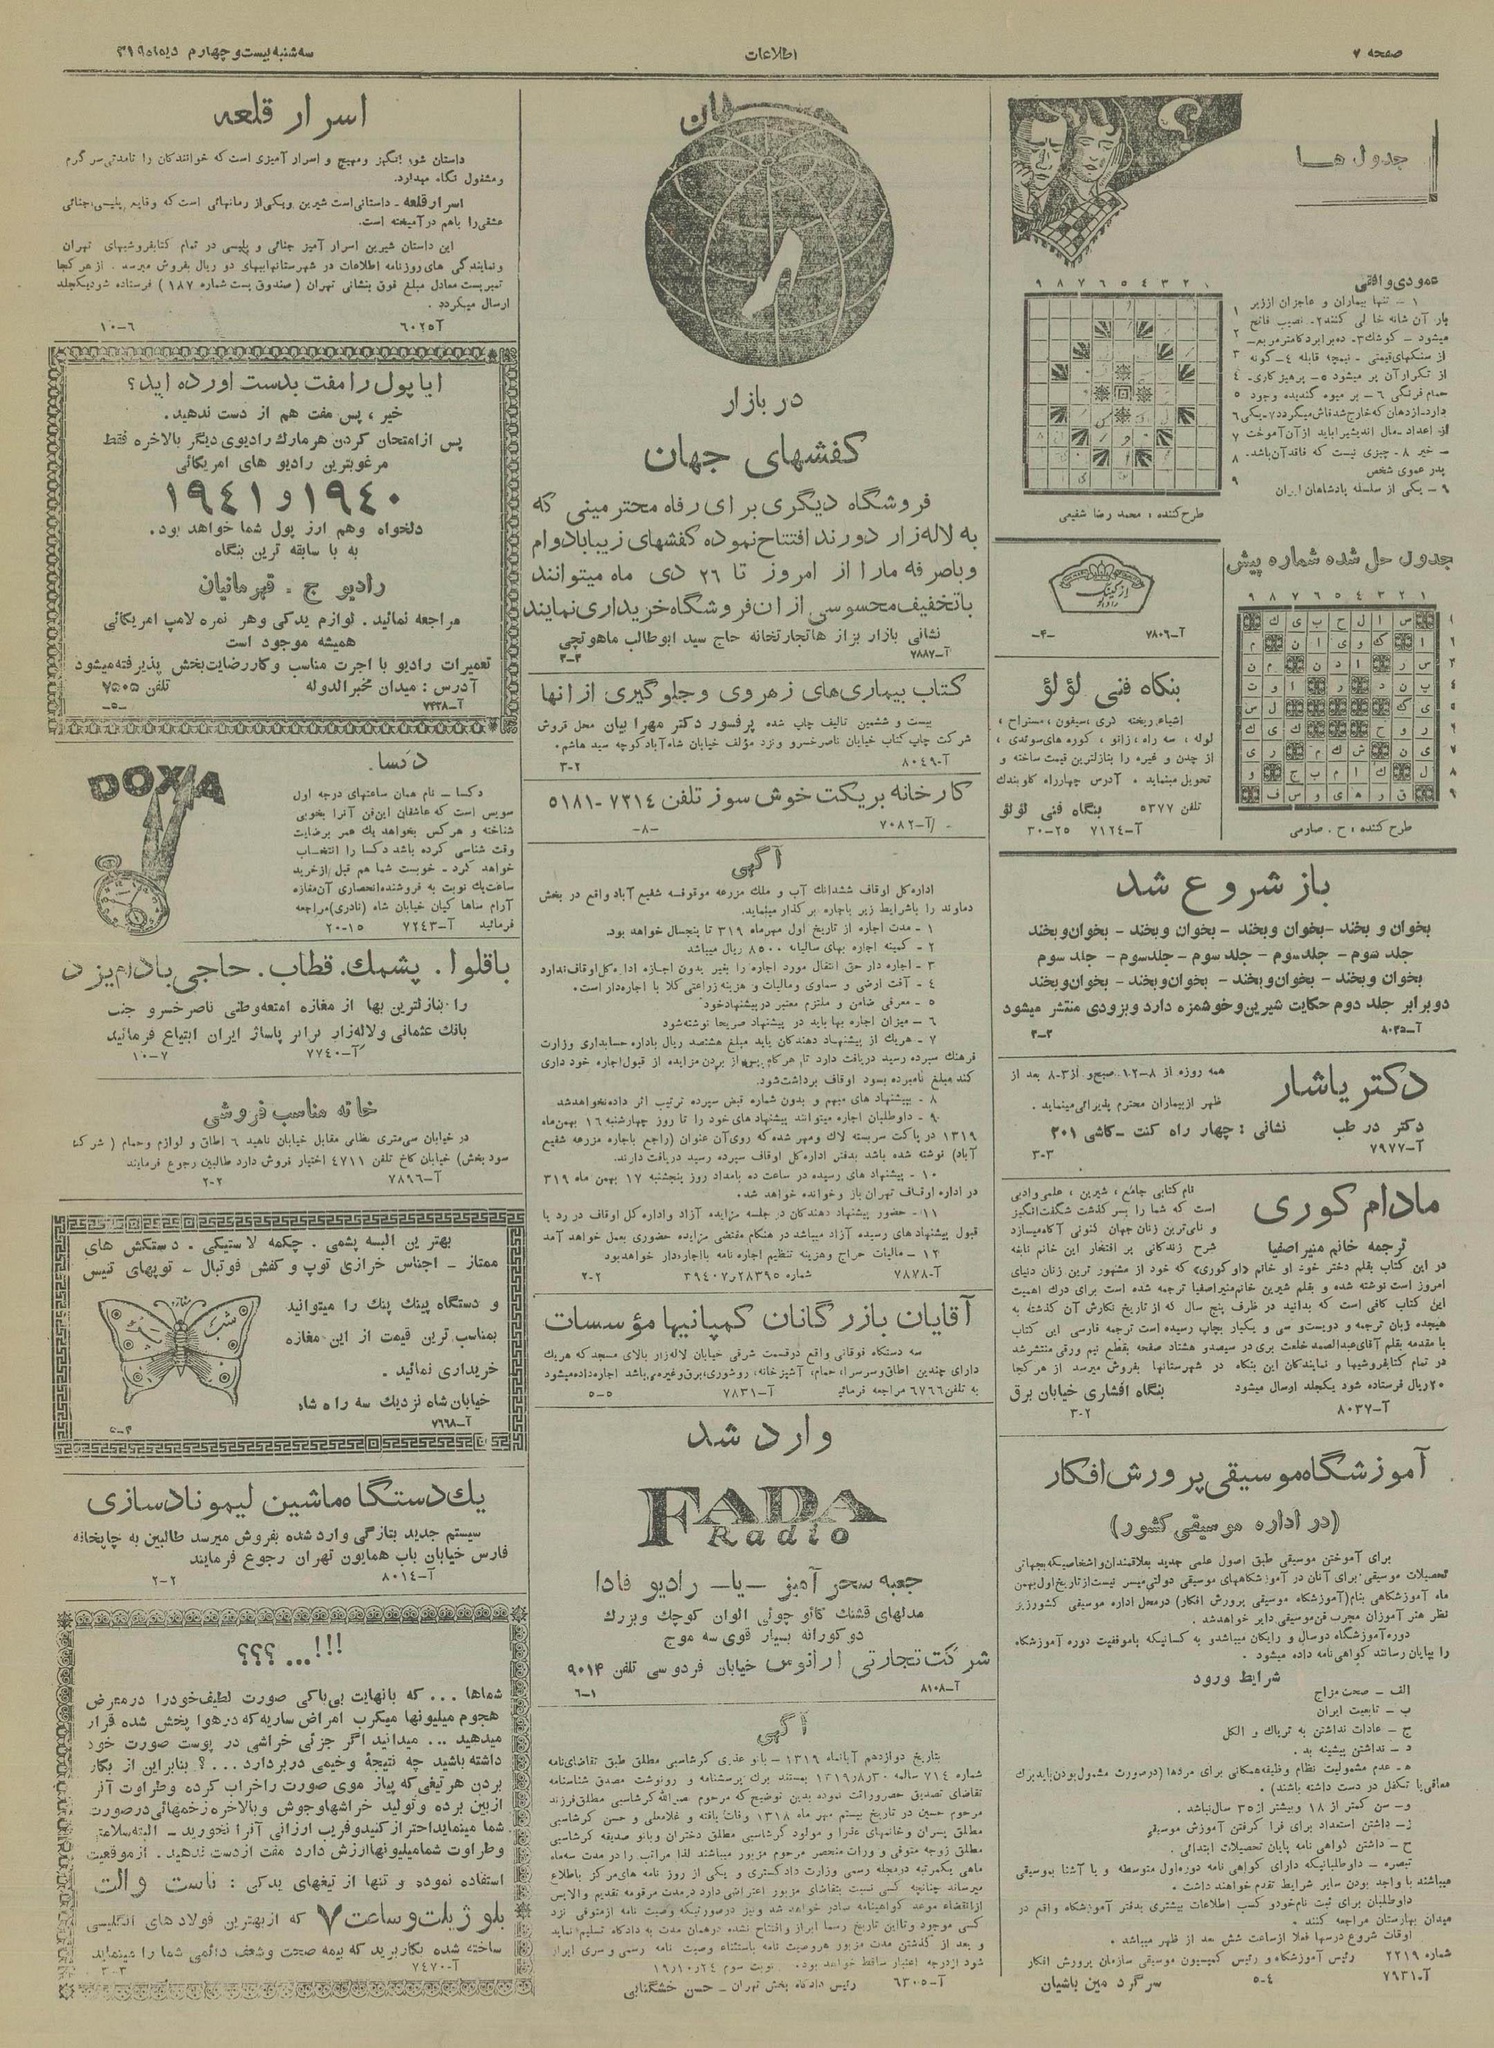 صفحه ۶
اطلاعات
سه‌شنبه بیست و چهارم دیماه ۱۳۱۹
جدول ها
عمودی و افقی
۱ – تنها بیماران و عاجزان از زیر
بار آن شانه خالی کنند ۲ـ نصیب فاتح
از تکرار آن پر میشود ۵ – پرهیزکاری ـ
حمام فرنگی ۶ – بر میوه گندیده وجود
– خیر ۸ـ چیزی نیست که فاقد آن باشد.
پدر عموی شخص
۹ – یکی از سلسله پادشاهان ایران
طرح کننده : محمد رضا شفیعی
جدول حل شده شماره پیش
طرح کننده : ح . صارمی
آ-۷۸۰۶
-۴-
بنگاه فنی لؤلؤ
لوله ، سه راه ، زانو ، کوره های سوئدی ،
از چدن و غیره را بنازلترین قیمت ساخته و
تحویل مینماید . آدرس چهارراه کاوبندك
تلفن ۵۳۷۷ بنگاه فنی لؤلؤ
آ-۷۱۲۴ ۲۵-۳۰
باز شروع شد
بخوان و بخند – بخوان و بخند – بخوان و بخند – بخوان و بخند
جلد سوم – جلد سوم – جلد سوم – جلد سوم – جلد سوم
بخوان و بخند – بخوان و بخند – بخوان و بخند – بخوان و بخند
دو برابر جلد دوم حکایت شیرین و خوشمزه دارد و بزودی منتشر میشود
آ-۸۰۳۵ ۲-۳
دکتر یاشار
همه روزه از ۸-۱۲ صبح و از ۳-۸ بعد از
ظهر از بیماران محترم پذیرائی مینماید .
دکتر در طب نشانی : چهار راه کنت – کاشی ۲۰۱
آ-۷۹۷۷ ۳-۳
مادام کوری
ترجمه خانم منیر اصفیا
نام کتابی جامع ، شیرین ، علمی و ادبی
است که شما را بسر گذشت شگفت انگیز
و نامی ترین زنان جهان کنونی آگاه میسازد
شرح زندگانی پر افتخار این خانم نابغه
در این کتاب بقلم دختر خود او خانم «او کوری» که خود از مشهور ترین زنان دنیای
امروز است نوشته شده و بقلم شیرین خانم منیر اصفیا ترجمه شده است برای درك اهمیت
این کتاب کافی است که بدانید در ظرف پنج سال که از تاریخ نگارش آن گذشته به
هیجده زبان ترجمه و دویست و سی و یکبار بچاپ رسیده است ترجمه فارسی این کتاب
با مقدمه بقلم آقای عبدالصمد خلعت بری در سیصد و هشتاد صفحه بقطع نیم ورقی منتشر شد
در تمام کتابفروشیها و نمایندگان این بنگاه در شهرستانها بفروش میرسد از هر کجا
۲۰ ریال فرستاده شود یکجلد ارسال میشود بنگاه افشاری خیابان برق
آ-۸۰۳۷ ۲-۳
آموزشگاه موسیقی پرورش افکار
(در اداره موسیقی کشور)
برای آموختن موسیقی طبق اصول علمی جدید بعلاقمندان و اشخاصیکه بجهاتی
تحصیلات موسیقی برای آنان در آموزشگاههای موسیقی دولتی میسر نیست از تاریخ اول بهمن
ماه آموزشگاهی بنام (آموزشگاه موسیقی پرورش افکار) در محل اداره موسیقی کشور زیر
نظر هنر آموزان مجرب فن موسیقی دایر خواهد شد .
دوره آموزشگاه دو سال و رایگان میباشد و به کسانیکه با موفقیت دوره آموزشگاه
را بپایان رسانند گواهی نامه داده میشود .
شرایط ورود
الف – صحت مزاج
ب – تابعیت ایران
ج – عادات نداشتن به تریاك و الکل
د – نداشتن پیشینه بد .
ه – عدم مشمولیت نظام وظیفه همگانی برای مردها (در صورت مشمول بودن باید برك
معافی یا تکفل در دست داشته باشند) .
و – سن کمتر از ۱۸ و بیشتر از ۳۵ سال نباشد .
ز – داشتن استعداد برای فرا گرفتن آموزش موسیقی
ح – داشتن گواهی نامه پایان تحصیلات ابتدائی .
تبصره – داوطلبانیکه دارای گواهی نامه دوره اول متوسطه و یا آشنا بموسیقی
میباشند با واجد بودن سایر شرایط تقدم خواهند داشت .
داوطلبان برای ثبت نام خود و کسب اطلاعات بیشتری بدفتر آموزشگاه واقع در
میدان بهارستان مراجعه کنند .
اوقات شروع درسها فعلا از ساعت شش بعد از ظهر میباشد .
شماره ۲۲۱۹ رئیس آموزشگاه و رئیس کمیسیون موسیقی سازمان پرورش افکار
آ-۷۹۳۱ ۴-۵ سرگرد مین باشیان
در بازار
کفشهای جهان
فروشگاه دیگری برای رفاه محترمینی که
به لاله زار دورند افتتاح نموده کفشهای زیبا بادوام
و باصرفه ما را از امروز تا ۲۶ دی ماه میتوانند
با تخفیف محسوسی از ان فروشگاه خریداری نمایند
نشانی بازار بزازها تجارتخانه حاج سید ابوطالب ماهوتچی
آ-۷۸۸۷ ۳-۳
کتاب بیماری های زهروی و جلوگیری از انها
بیست و ششمین تالیف چاپ شده پرفسور دکتر مهرابیان محل فروش
شرکت چاپ کتاب خیابان ناصر خسرو و نزد مؤلف خیابان شاه آباد کوچه سید هاشم .
آ-۸۰۴۹ ۲-۳
کارخانه بریکت خوش سوز تلفن ۷۳۱۴ - ۵۱۸۱
آ-۷۰۸۲ -۸-
آگهی
اداره کل اوقاف ششدانك آب و ملك مزرعه موقوفه شفیع آباد واقع در بخش
دماوند را باشرایط زیر باجاره بر گذار مینماید.
۱ – مدت اجاره از تاریخ اول مهرماه ۳۱۹ تا پنجسال خواهد بود.
۲ – کمینه اجاره بهای سالیانه ۸۵۰۰ ریال میباشد
۳ – اجاره دار حق انتقال مورد اجاره را بغیر بدون اجازه اداره کل اوقاف ندارد
۴ – آفت ارضی و سماوی و مالیات و هزینه زراعتی کلا با اجاره دار است .
۵ – معرفی ضامن و ملتزم معتبر در پیشنهاد خود
۶ – میزان اجاره بها باید در پیشنهاد صریحا نوشته شود
۷ – هریك از پیشنهاد دهندگان باید مبلغ هشتصد ریال باداره حسابداری وزارت
فرهنك سپرده رسید دریافت دارد تا هر کدام پس از بردن مزایده از قبول اجاره خود داری
کند مبلغ نامبرده بسود اوقاف برداشت شود.
۸ – پیشنهاد های مبهم و بدون شماره قبض سپرده ترتیب اثر داده نخواهد شد
۹ – داوطلبان اجاره میتوانند پیشنهاد های خود را تا روز چهارشنبه ۱۶ بهمن ماه
۱۳۱۹ در پاکت سربسته لاك و مهر شده که روی آن عنوان (راجع باجاره مزرعه شفیع
آباد) نوشته شده باشد بدفتر اداره کل اوقاف سپرده رسید دریافت دارند.
۱۰ – پیشنهاد های رسیده در ساعت ده بامداد روز پنجشنبه ۱۷ بهمن ماه ۳۱۹
در اداره اوقاف تهران باز و خوانده خواهد شد .
۱۱ – حضور پیشنهاد دهندگان در جلسه مزایده آزاد و اداره کل اوقاف در رد یا
قبول پیشنهاد های رسیده آزاد میباشد در هنگام مقتضی مزایده حضوری بعمل خواهد آمد
۱۲ – مالیات حراج و هزینه تنظیم اجاره نامه با اجاره دار خواهد بود
آ-۷۸۷۸ شماره ۲۸۳۹۵ر۳۹۴۰۷ ۲-۲
آقایان بازرگانان کمپانیها مؤسسات
سه دستگاه فوقانی واقع در قسمت شرقی خیابان لاله زار بالای مسجد که هریك
دارای چندین اطاق و سرسرا، حمام، آشپزخانه، روشوری، برق و غیره میباشد اجاره داده میشود
به تلفن ۶۷۶۶ مراجعه فرمائید آ-۷۸۳۱ ۵-۵
وارد شد
FADA
Radio
جعبه سحر آمیز – یا – رادیو فادا
مدلهای قشنك کائو چوئی الوان کوچك و بزرك
دو کورانه بسیار قوی سه موج
شرکت تجارتی ارانوس خیابان فردوسی تلفن ۹۰۱۴
آ-۸۱۰۸ ۱-۶
آگهی
بتاریخ دوازدهم آبانماه ۱۳۱۹ – بانو عذری گرشاسبی مطلق طبق تقاضای نامه
تقاضای تصدیق حصر وراثت نموده بدین توضیح که مرحوم نصرالله گرشاسبی مطلق فرزند
مرحوم حسین در تاریخ بیستم مهر ماه ۱۳۱۸ وفات یافته و غلامعلی و حسن گرشاسبی
مطلق پسران و خانمهای عذرا و مولود گرشاسبی مطلق دختران و بانو صدیقه گرشاسبی
مطلق زوجه متوفی و وراث منحصر مرحوم مزبور میباشند لذا مراتب را در مدت سه ماه
ماهی یکمرتبه در مجله رسمی وزارت دادگستری و یکی از روز نامه های مرکز باطلاع
میرساند چنانچه کسی نسبت بتقاضای مزبور اعتراضی دارد در مدت مرقومه تقدیم والا پس
از انقضاء موعد گواهینامه صادر خواهد شد و نیز در صورتیکه وصیت نامه از متوفی نزد
کسی موجود و تا این تاریخ رسما ابراز و افتتاح نشده در همان مدت به دادگاه تسلیم نماید
و بعد از گذشتن مدت مزبور هر وصیت نامه باستثناء وصیت نامه رسمی و سری ابراز
شود از درجه اعتبار ساقط خواهد بود . نوبت سوم ۲۴ر۱۰ر۱۹
آ-۶۳۰۵ رئیس دادگاه بخش تهران – حسن خشگنابی
اسرار قلعه
داستان شور انگیز و مهیج و اسرار آمیزی است که خوانندگان را تا مدتی سر گرم
و مشغول نگاه میدارد.
اسرار قلعه – داستانی است شیرین و یکی از رمانهائی است که وقایع پلیسی، جنائی
عشقی را باهم در آمیخته است.
این داستان شیرین اسرار آمیز جنائی و پلیسی در تمام کتابفروشیهای تهران
و نمایندگی های روزنامه اطلاعات در شهرستانها ببهای دو ریال بفروش میرسد . از هر کجا
تمبر پست معادل مبلغ فوق بنشانی تهران (صندوق پست شماره ۱۸۷) فرستاده شود یکجلد
ارسال میگردد .
آ-۶۰۲۵ ۶-۱۰
ایا پول را مفت بدست اورده اید؟
خیر ، پس مفت هم از دست ندهید.
پس از امتحان کردن هر مارك رادیوی دیگر بالاخره فقط
مرغوبترین رادیو های امریکائی
۱۹۴۰ و ۱۹۴۱
دلخواه و هم ارز پول شما خواهد بود.
به با سابقه ترین بنگاه
رادیو ج . قهرمانیان
مراجعه نمائید . لوازم یدکی و هر نمره لامپ امریکائی
همیشه موجود است
تعمیرات رادیو با اجرت مناسب و کار رضایت بخش پذیرفته میشود
آدرس : میدان مخبر الدوله تلفن ۷۵۰۵
آ-۷۴۳۸ -۵-
دکسا.
DOXA
دکسا – نام همان ساعتهای درجه اول
سویس است که عاشقان این فن آنرا بخوبی
شناخته و هر کس بخواهد یك عمر برضایت
وقت شناسی کرده باشد دکسا را انتخاب
خواهد کرد – خوبست شما هم قبل از خرید
ساعت یك نوبت به فروشنده انحصاری آن مغازه
آرام ساها کیان خیابان شاه (نادری) مراجعه
فرمائید آ-۷۲۴۳ ۱۵-۲۰
باقلوا. پشمك. قطاب. حاجی بادام یزد
را بنازلترین بها از مغازه امتعه وطنی ناصر خسرو جنب
بانك عثمانی و لاله زار برابر پاساژ ایران ابتیاع فرمائید
آ-۷۷۴۰ ۷-۱۰
خانه مناسب فروشی
در خیابان سی متری نظامی مقابل خیابان ناهید ۶ اطاق و لوازم و حمام (شرکت
سود بخش) خیابان کاخ تلفن ۴۷۱۱ اختیار فروش دارد طالبین رجوع فرمایند
آ-۷۸۹۶ ۲-۲
بهترین البسه پشمی . چکمه لاستیکی . دستکش های
ممتاز – اجناس خرازی توپ و کفش فوتبال – توپهای تنیس
و دستگاه پینك پنك را میتوانید
بمناسب ترین قیمت از این مغازه
خریداری نمائید .
خیابان شاه نزدیك سه راه شاه
آ-۷۶۶۸
یك دستگاه ماشین لیموناد سازی
سیستم جدید بتازگی وارد شده بفروش میرسد طالبین به چاپخانه
فارس خیابان باب همایون تهران رجوع فرمایند
آ-۸۰۱۴ ۲-۲
!!!...؟؟؟
شماها ... که بانهایت بی باکی صورت لطیف خود را در معرض
هجوم میلیونها میکرب امراض ساریه که در هوا پخش شده قرار
میدهید ... میدانید اگر جزئی خراشی در پوست صورت خود
داشته باشید چه نتیجهٔ وخیمی در بردارد ...؟ بنابراین از بکار
بردن هر تیغی که پیاز موی صورت را خراب کرده و طراوت آنرا
از بین برده و تولید خراشها و جوش و بالاخره زخمهائی در صورت
شما مینماید احتراز کنید و فریب ارزانی آنرا نخورید – البته سلامتی
و طراوت شما میلیونها ارزش دارد مفت از دست ندهید . از موقعیت
استفاده نموده و تنها از تیغهای یدکی : ناست والت
بلو ژیلت و ساعت ۷ که از بهترین فولاد های انگلیسی
ساخته شده بکار برید که بیمه صحت و شعف دائمی شما را مینماید
آ-۷۴۷۰ ۳-۳